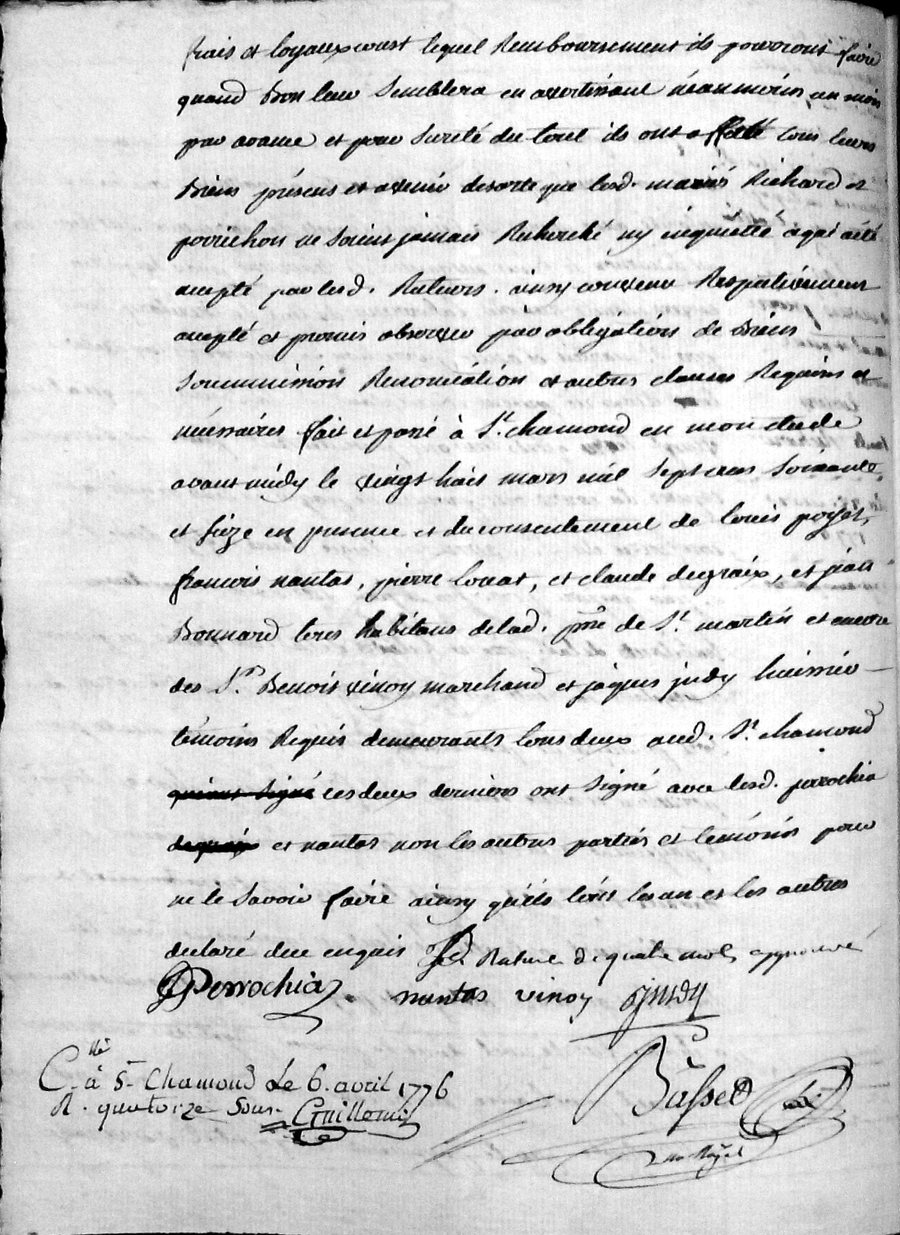 frais et loyaux coust lequel Remboursement ils pourront faire
quand Bon leur Semblera en avertissant néanmoins un mois
par avance et pour Sureté du tout ils ont affecté tous leurs
Biens présens et avenir desorte que lesd. mariés Richard et
perrichon ne Soient jamais Recherché ny inquietté ce qui a été
accepté par lesd. ainsy convenu Respectivement
accepté et promis observer par obligations de Biens
Soummission Renonciation et autres clauses Requises et
nécessaires fait et passé à St. chamond en mon etude
avant midy le vingt huit mars mil Sept cens Soixante
et Seize en presence et du consentement de louis poyet,
françois nantas, pierre louat, et claude degraix, et jean
Bonnard tous habitans delad. psse de St. martin et encore
des Srs. Benoit vinoy marchand et jaques judy huissier
témoins Requis demeurants tous deux aud. St. chamond
qui ont Signé ces deux derniers ont Signé avec lesd. perrochia
et nantas non les autres parties et témoins pour
ne le Savoir faire ainsy qu'ils l'ont les un et les autres
declaré de ce enquis Rature de quatre mots approuvée
Perrochia nantas vinoy Judy
Clé à St. Chamond Le 6. avril 1776
R. quatorze Sous. Guillemin
Basset
no. Royal